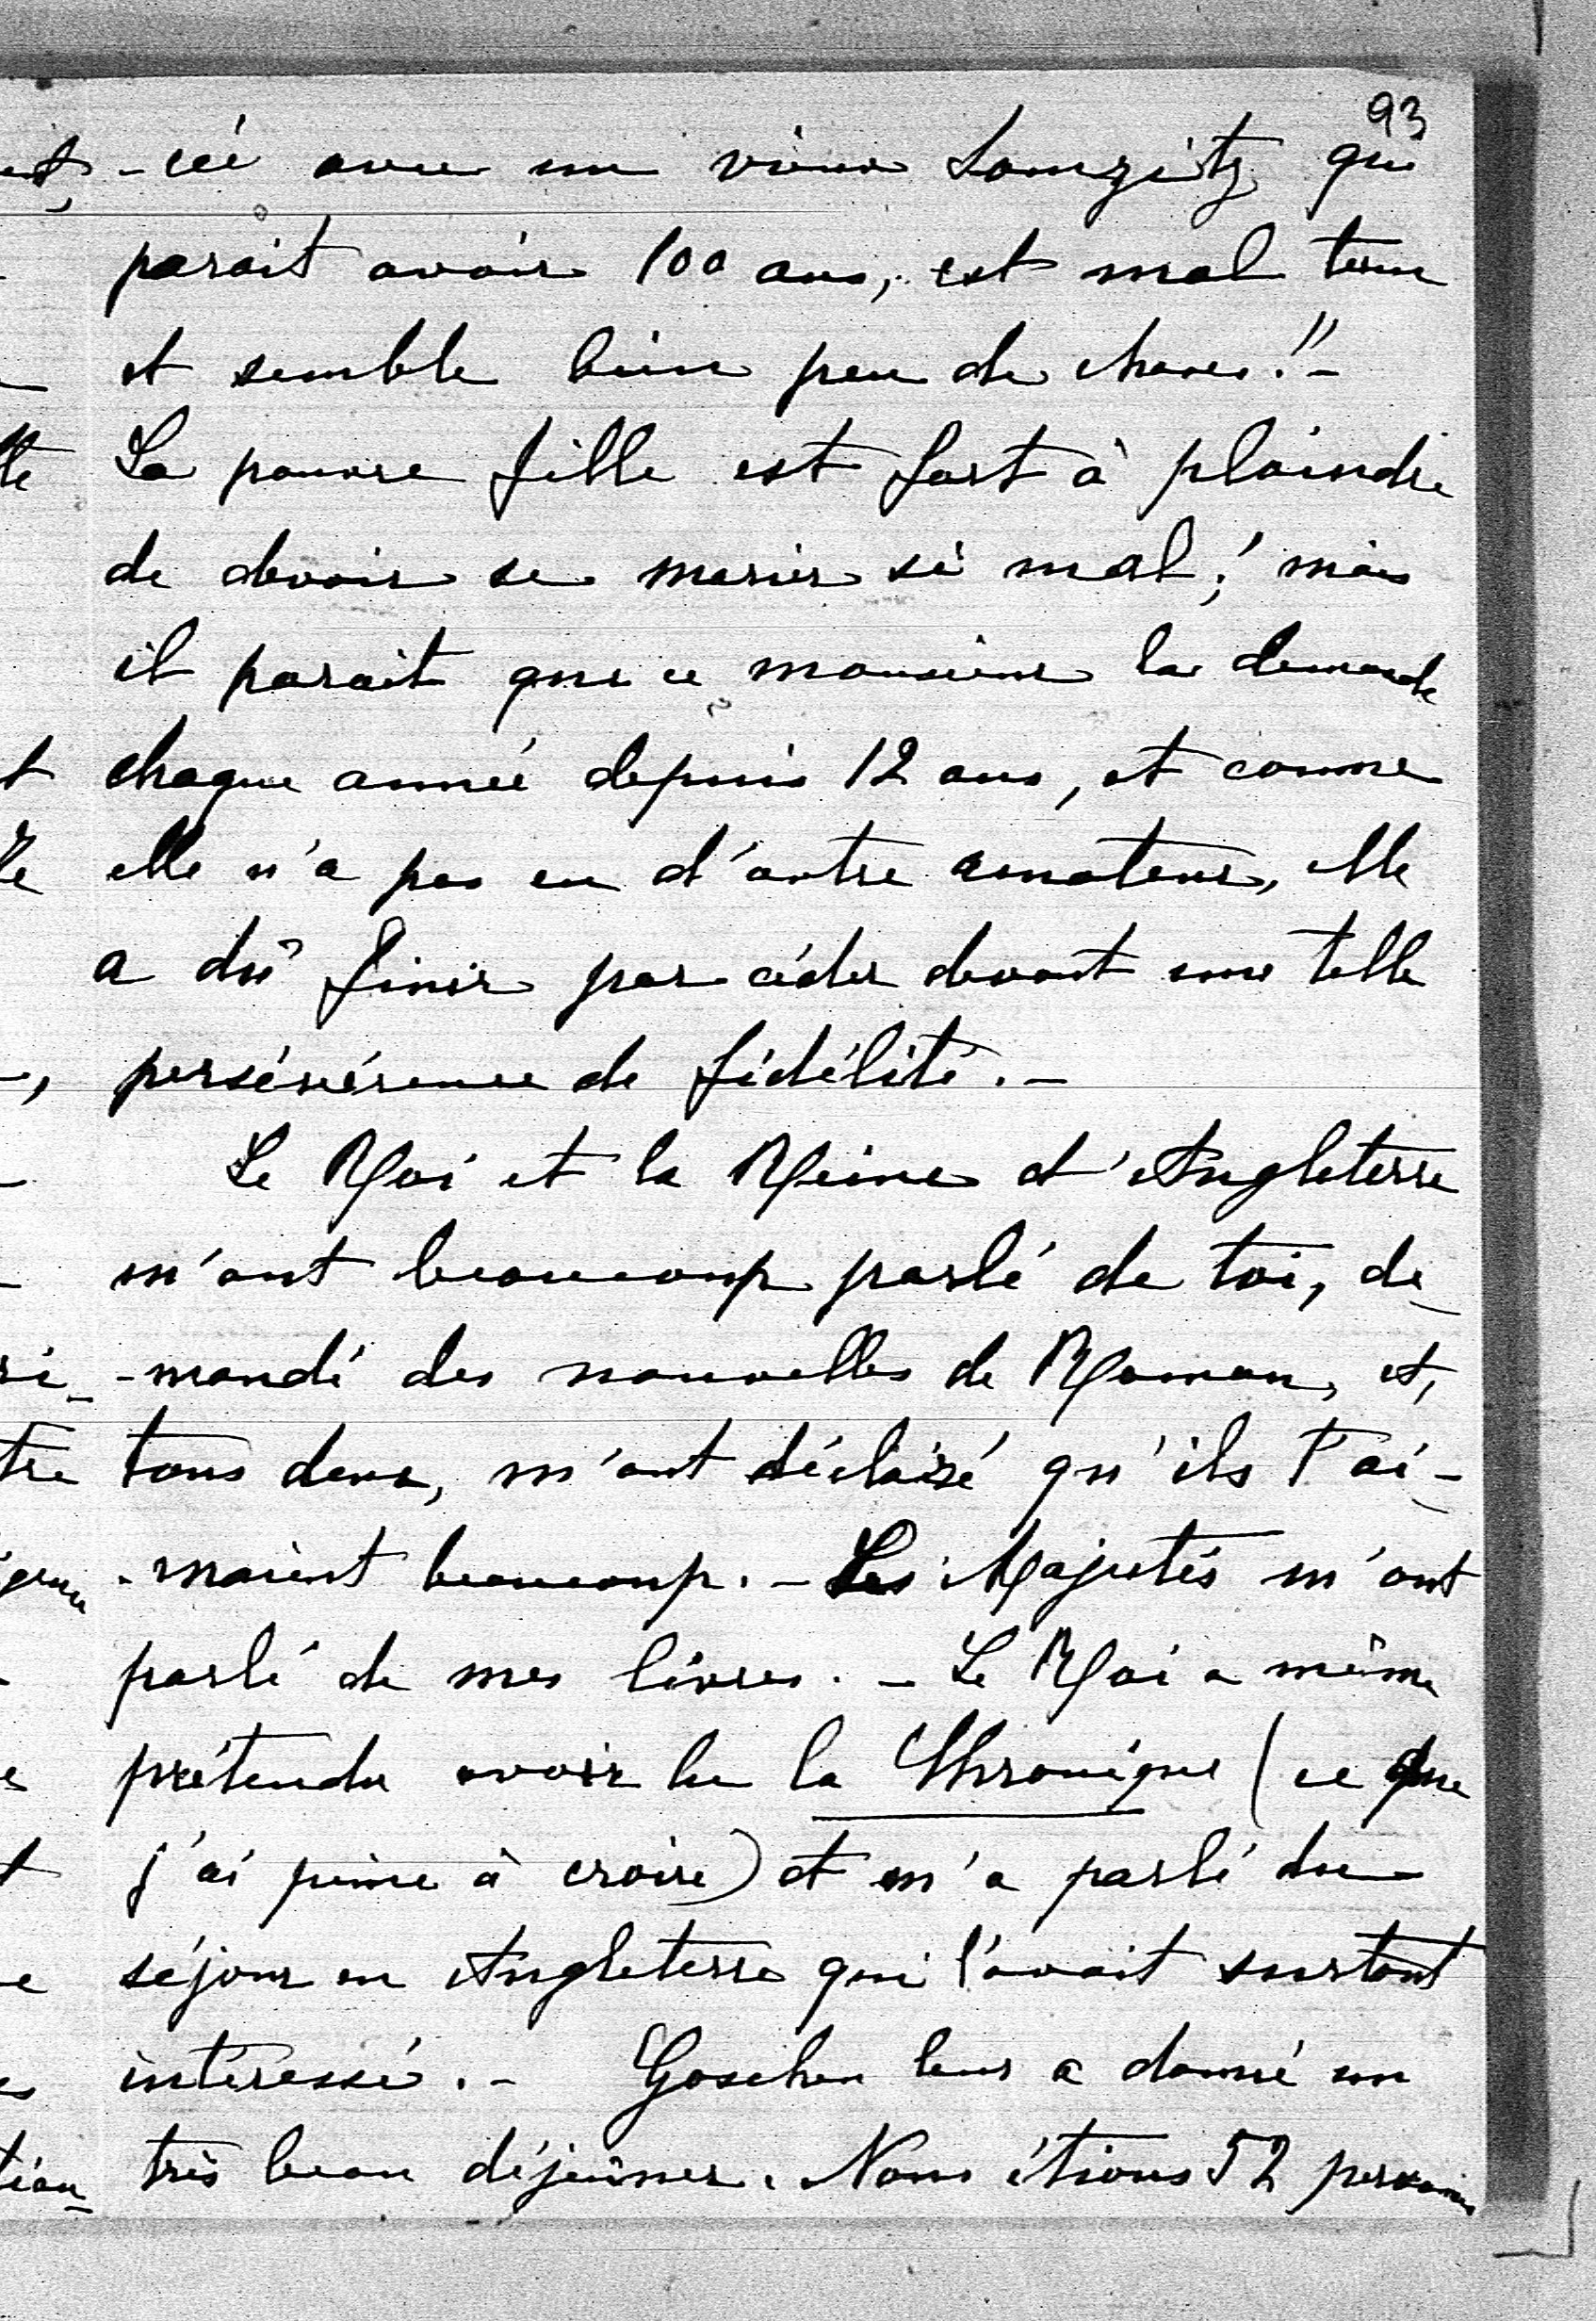 93
-cée avec un vieux qui
parait avoir 100 ans, est mal tenu
et semble bien peu de chose!! -
La pauvre fille est fort à plaindre
de devoir se marier si mal; mais
il parait que ce monsieur la demande
chaque année depuis 12 ans, et comme
elle n'a pas eu d'autre amateur, elle
a dû finir par céder devant une telle
persévérence de fidélité. -
Le Roi et la Reine d'Angleterre
m'ont beaucoup parlé de toi, de-
-mandé des nouvelles de Maman, et,
tous deux, m'ont déclaré qu'ils t'ai-
-maient beaucoup. - Les Majestés m'ont
parlé de mes livres. - Le Roi a même
prétendu avoir lu la Chronique (ce que
j'ai peine à croire) et m'a parlé du
séjour en Angleterre qui l'avait surtout
intéressé. - Goschen leur a donné un
très beau déjeuner. Nous étions 52 personnes